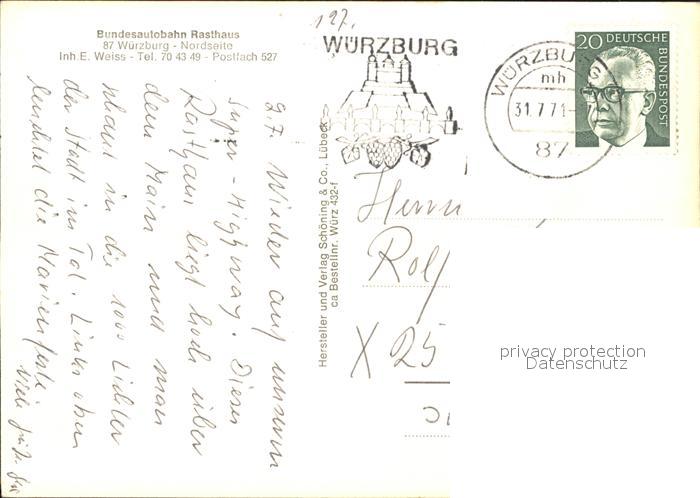 Bundesautobahn Rasthaus
87 Würzburg - Nordseite
Inh. E. Weiss - Tel. 70 43 49 - Postfach 527
127.
WÜRZBURG
WÜRZBURG
mh
31.7.71
87
20 DEUTSCHE
BUNDESPOST
Hersteller und Verlag Schöning & Co., Lübeck
ca Bestellnr. Würz 432-f
Wieder auf unserm
Super-Highway. Dieses
Rasthaus liegt hoch über
dem Main und man
schaut in die 1000 Lichter
der Stadt im Tal. Links oben
leuchtet die Marienfeste.
Herrn
Rolf
X 25
privacy protection
Datenschutz